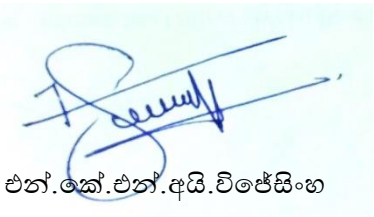 එන්.කේ.එන්.අයි.විජේසිංහ